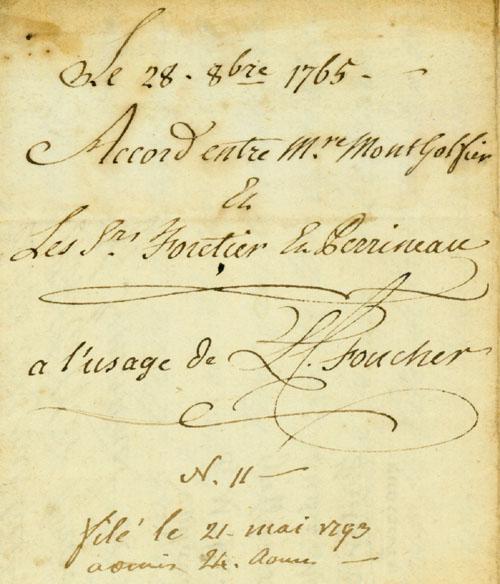 Le 28. 8bre 1765 -
Accord entre Mre Montgolfier
Et
Les Srs Foretier Et Perrineau
a l'usage de L. C. Foucher
N. 11 -
filé le 21. mai 1793
admis 24.